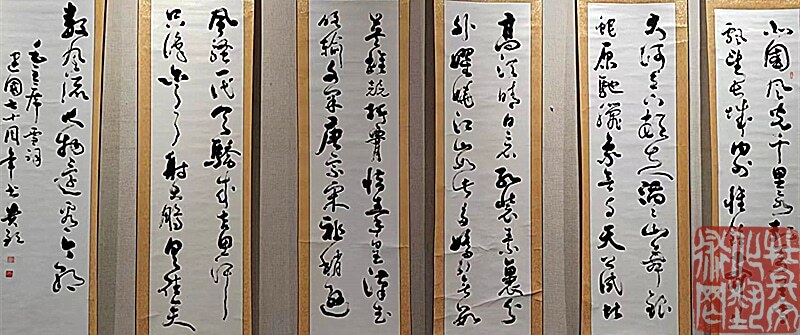 北國風光千里冰封
飘望长城内外惟
大河上下顿失滔々山舞银
蛇原驰蠟象欲与天公试比
高须晴日看红装素裹分
外妖娆江山如此多娇引无数
英雄竞折腰惜秦皇漢武
略输文采唐宗宋祖稍逊
風骚一代天驕成吉思汗
只识弯弓射大鵰俱往矣
数風流人物还看今朝
毛主席雪词
建国十周年书